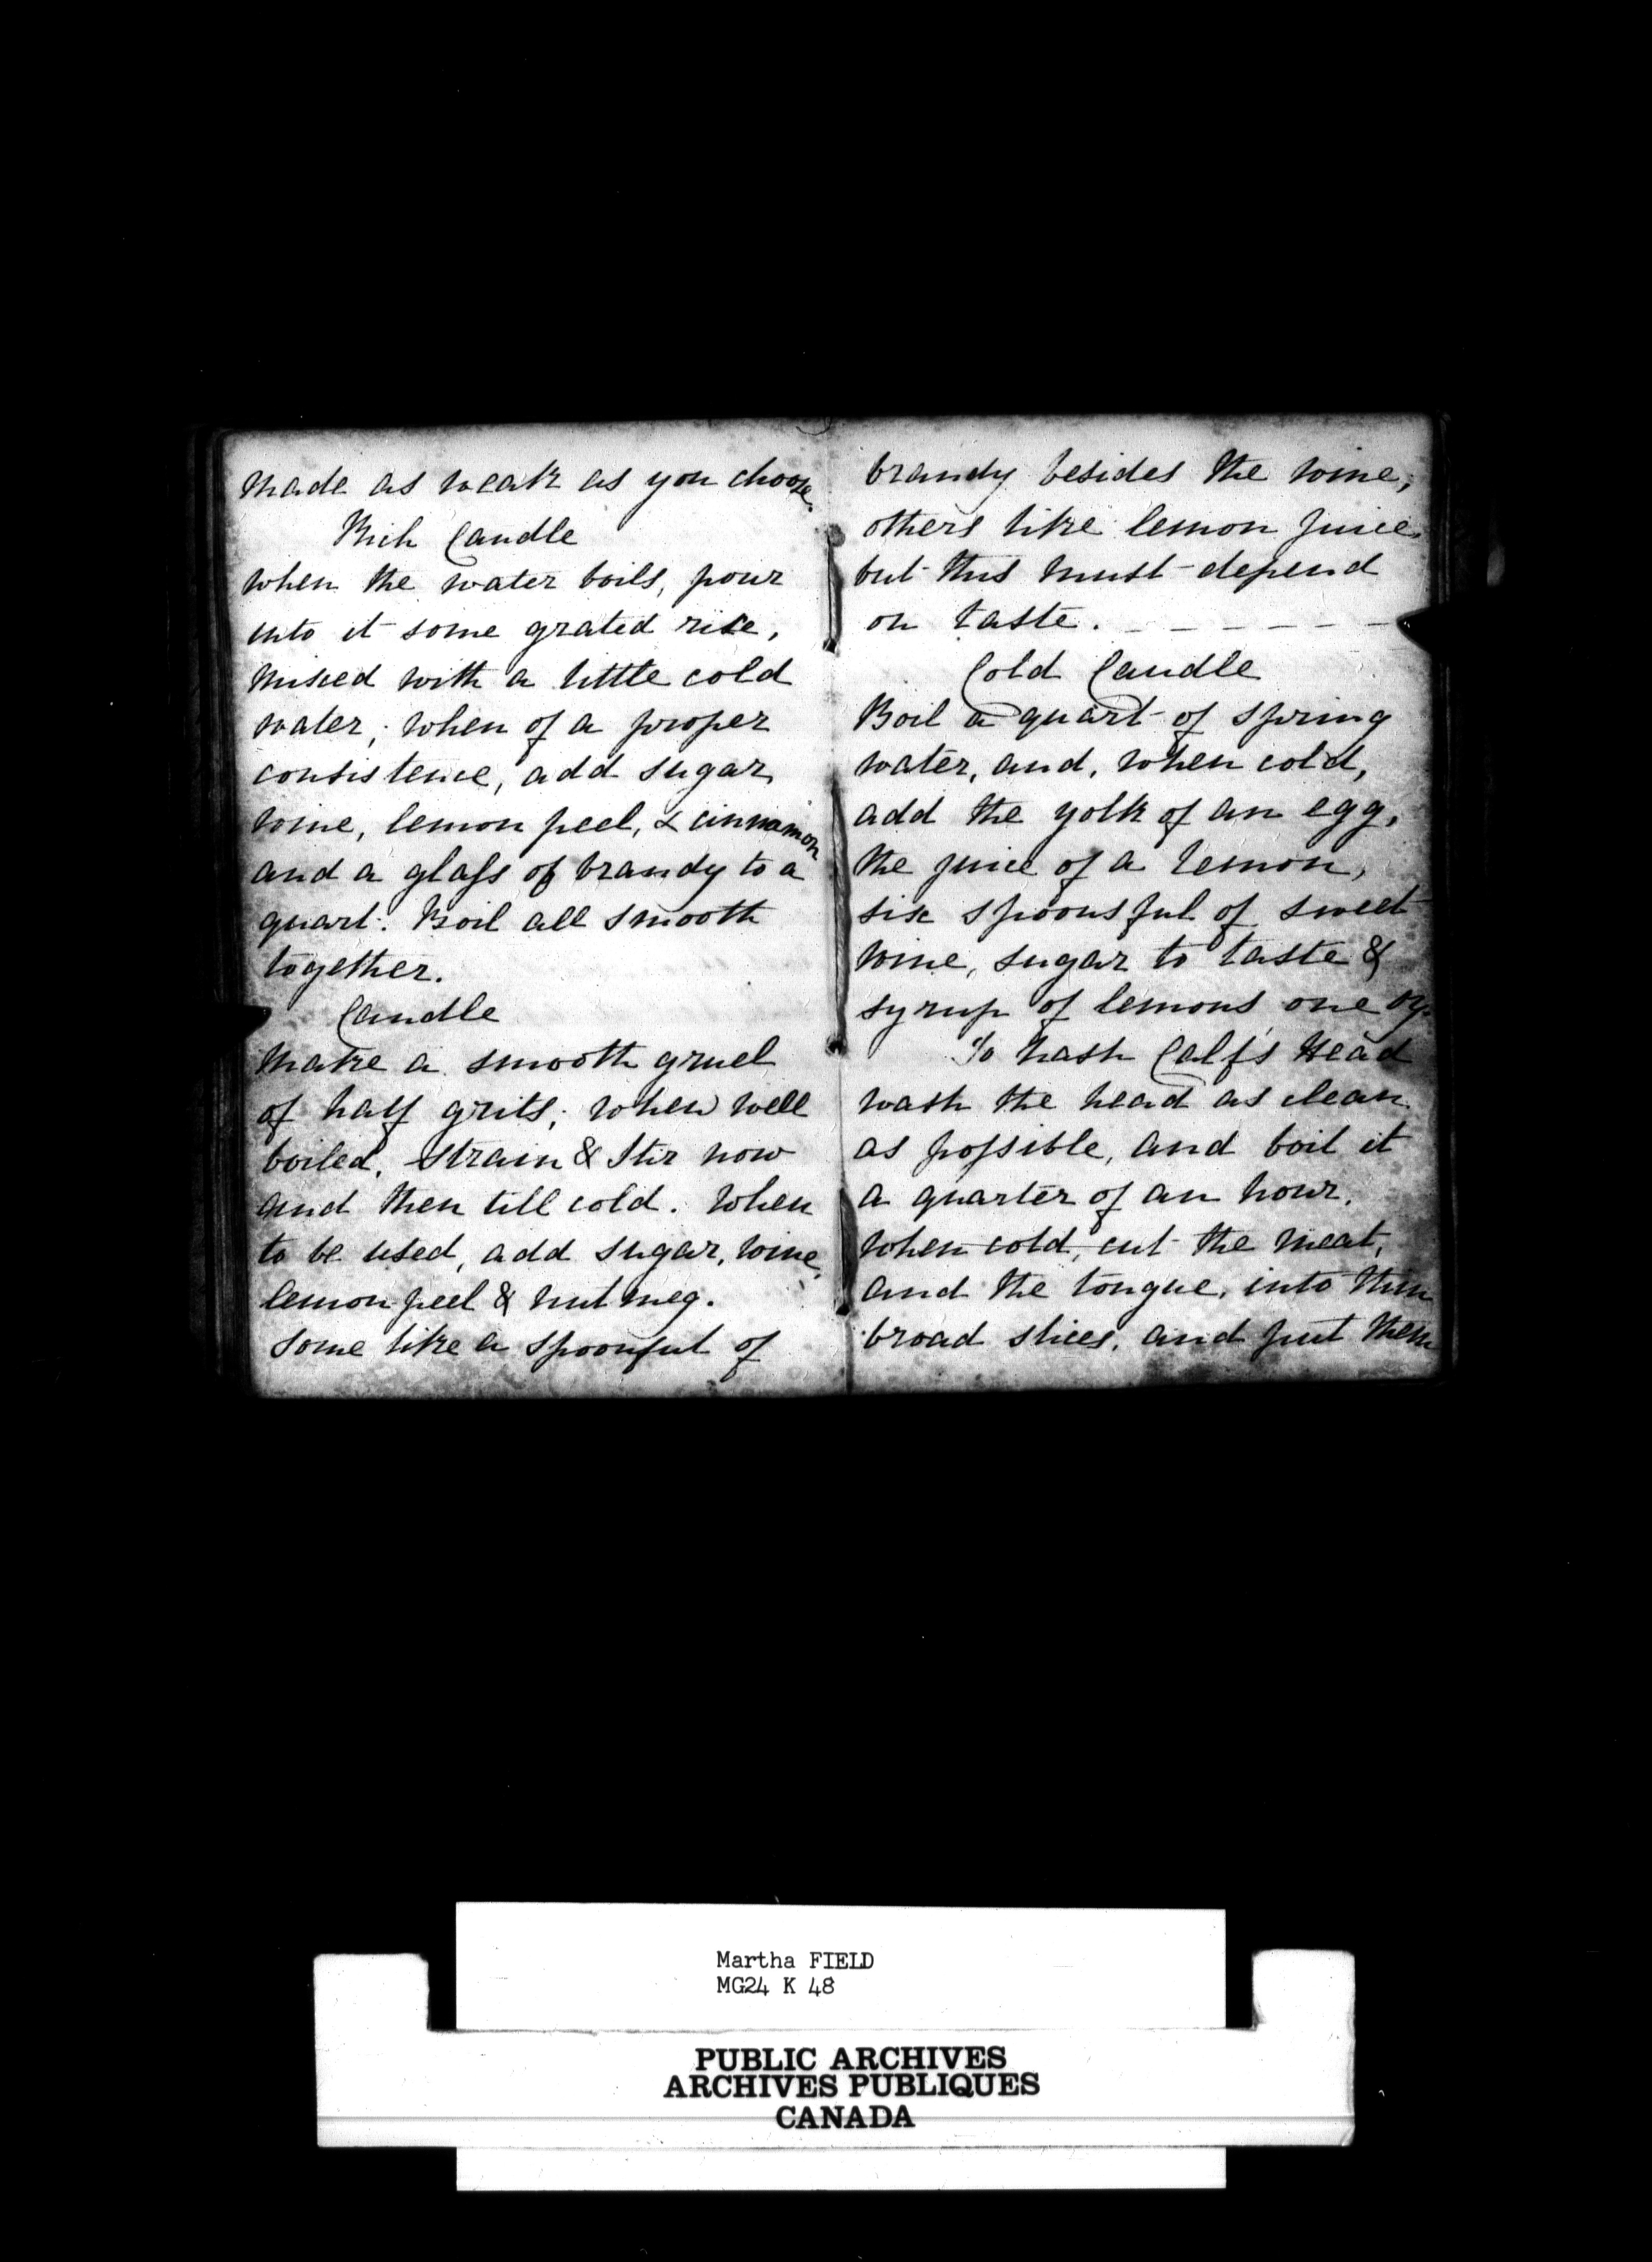 made as weak as you choose.
Rich Caudle
when the water boils, pour
into it some grated rice,
mixed with a little cold
water; when of a proper
consistence, add sugar,
wine, lemon peel, & cinnamon
and a glass of brandy to a
quart. Boil all smooth
together.
Caudle
Make a smooth gruel
of half grits; when well
boiled, strain & Stir now
and then till cold. When
to be used, add sugar, wine,
lemon peel & nutmeg.
Some like a spoonful of
brandy besides the wine;
others like lemon juice,
but this must depend
on taste. - - - - - -
Cold Caudle
Boil a quart of spring
water, and, when cold,
add the yolk of an egg,
the juice of a lemon,
six spoonsful of sweet
wine, sugar to taste &
syrup of lemons one oz.
To hash Calf's Head
wash the head as clean
as possible, and boil it
a quarter of an hour,
when cold, cut the meat,
and the tongue, into thin
broad slices, and put them
Martha FIELD
MG24 K 48
PUBLIC ARCHIVES
ARCHIVES PUBLIQUES
CANADA